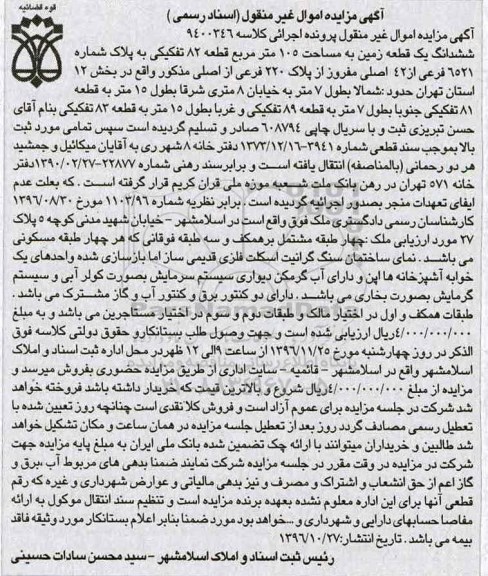 قوه قضائیه
آگهی مزایده اموال غیر منقول (اسناد رسمی )
آگهی مزایده اموال غیر منقول پرونده اجرائی کلاسه ۹۴۰۰۳۴۶
ششدانگ یک قطعه زمین به مساحت ۱۰۵ متر مربع قطعه ۸۲ تفکیکی به پلاک شماره
۶۵۲۱ فرعی از۴۲ اصلی مفروز از پلاک ۲۲۰ فرعی از اصلی مذکور واقع در بخش ۱۲
استان تهران حدود :شمالا بطول ۷ متر به خیابان ۸ متری شرقا بطول ۱۵ متر به قطعه
۸۱ تفکیکی جنوبا بطول ۷ متر به قطعه ۸۹ تفکیکی و غربا بطول ۱۵ متر به قطعه ۸۳ تفکیکی بنام آقای
حسن تبریزی ثبت و با سریال چاپی ۶۰۸۷۹۴ صادر و تسلیم گردیده است سپس تمامی مورد ثبت
بالا بموجب سند قطعی شماره ۳۹۴۱-۱۳۷۳/۱۲/۱۶ دفتر خانه ۸ شهر ری به آقایان میکائیل و جمشید
هر دو رحمانی (بالمناصفه) انتقال یافته اسـت و برابرسند رهنی شماره ۲۲۸۷۷-۱۳۹۰/۰۲/۲۷دفتر
خانه ۵۷۱ تهران در رهن بانک ملی شعبه موزه ملی قران کریم قرار گرفته اسـت . که بعلت عدم
ایفای تعهدات منجر بصدور اجرائیه گردیده است . برابر نظریه شماره ۱۱۰۳/۹۶ مورخ ۱۳۹۶/۰۸/۳۰
کارشناسان رسمی دادگستری ملک فوق واقع است در اسلامشهر - خیابان شهید مدنی کوچه ۵ پلاک
۲۷ مورد ارزیابی ملک :چهار طبقه مشتمل برهمکف و سه طبقه فوقانی که هر چهار طبقه مسکونی
می باشـد . نمای ساختمان سنگ گرانیت اسکلت فلزی قدیمی ساز اما بازسازی شده واحدهای یک
خوابه آشپزخانه ها اپن و دارای آب گرمکن دیواری سیستم سرمایش بصورت کولر آبی و سیستم
گرمایش بصورت بخاری می باشـد . دارای دو کنتور برق و کنتور آب و گاز مشـترک می باشد .
طبقات همکف و اول در اختیار مالک و طبقات دوم و سوم در اختیار مستأجرین می باشد و به مبلغ
۴/۰۰۰/۰۰۰/۰۰۰ریال ارزیابی شده است و جهت وصول طلب بستانکارو حقوق دولتی کلاسه فوق
الذکر در روز چهارشنبه مورخ ۱۳۹۶/۱۱/۲۵ از ساعت ۹الی ۱۲ ظهردر محل اداره ثبت اسناد و املاک
اسلامشهر واقع در اسلامشهر - قائمیه - سایت اداری از طریق مزایده حضوری بفروش میرسد و
مزایده از مبلغ ۴/۰۰۰/۰۰۰/۰۰۰ریال شروع و بالاترین قیمت که خریدار داشته باشد فروخته خواهد
شد شرکت در جلسه مزایده برای عموم آزاد است و فروش کلا نقدی است چنانچه روز تعیین شده با
تعطیل رسمی مصادف گردد روز بعد از تعطیل جلسه مزایده در همان ساعت و مکان تشکیل خواهد
شد طالبین و خریداران میتوانند با ارائه چک تضمین شده بانک ملی ایران به مبلغ پایه مزایده جهت
شرکت در مزایده در وقت مقرر در جلسه مزایده شرکت نمایند ضمنا بدهی های مربوط آب ،برق و
گاز اعم از حق انشعاب و اشتراک و مصرف و نیز بدهی مالیاتی و عوارض شهرداری و غیره که رقم
قطعی آنها برای این اداره معلوم نشده بعهده برنده مزایده است و تنظیم سند انتقال موکول به ارائه
مفاصا حسابهای دارایی و شهرداری و ...خواهد بود مورد ضمنا بنابر اعلام بستانکار مورد وثیقه فاقد
بیمه می باشد . تاریخ انتشار:۱۳۹۶/۱۰/۲۷
رئیس ثبت اسناد و املاک اسلامشهر - سید محسن سادات حسینی